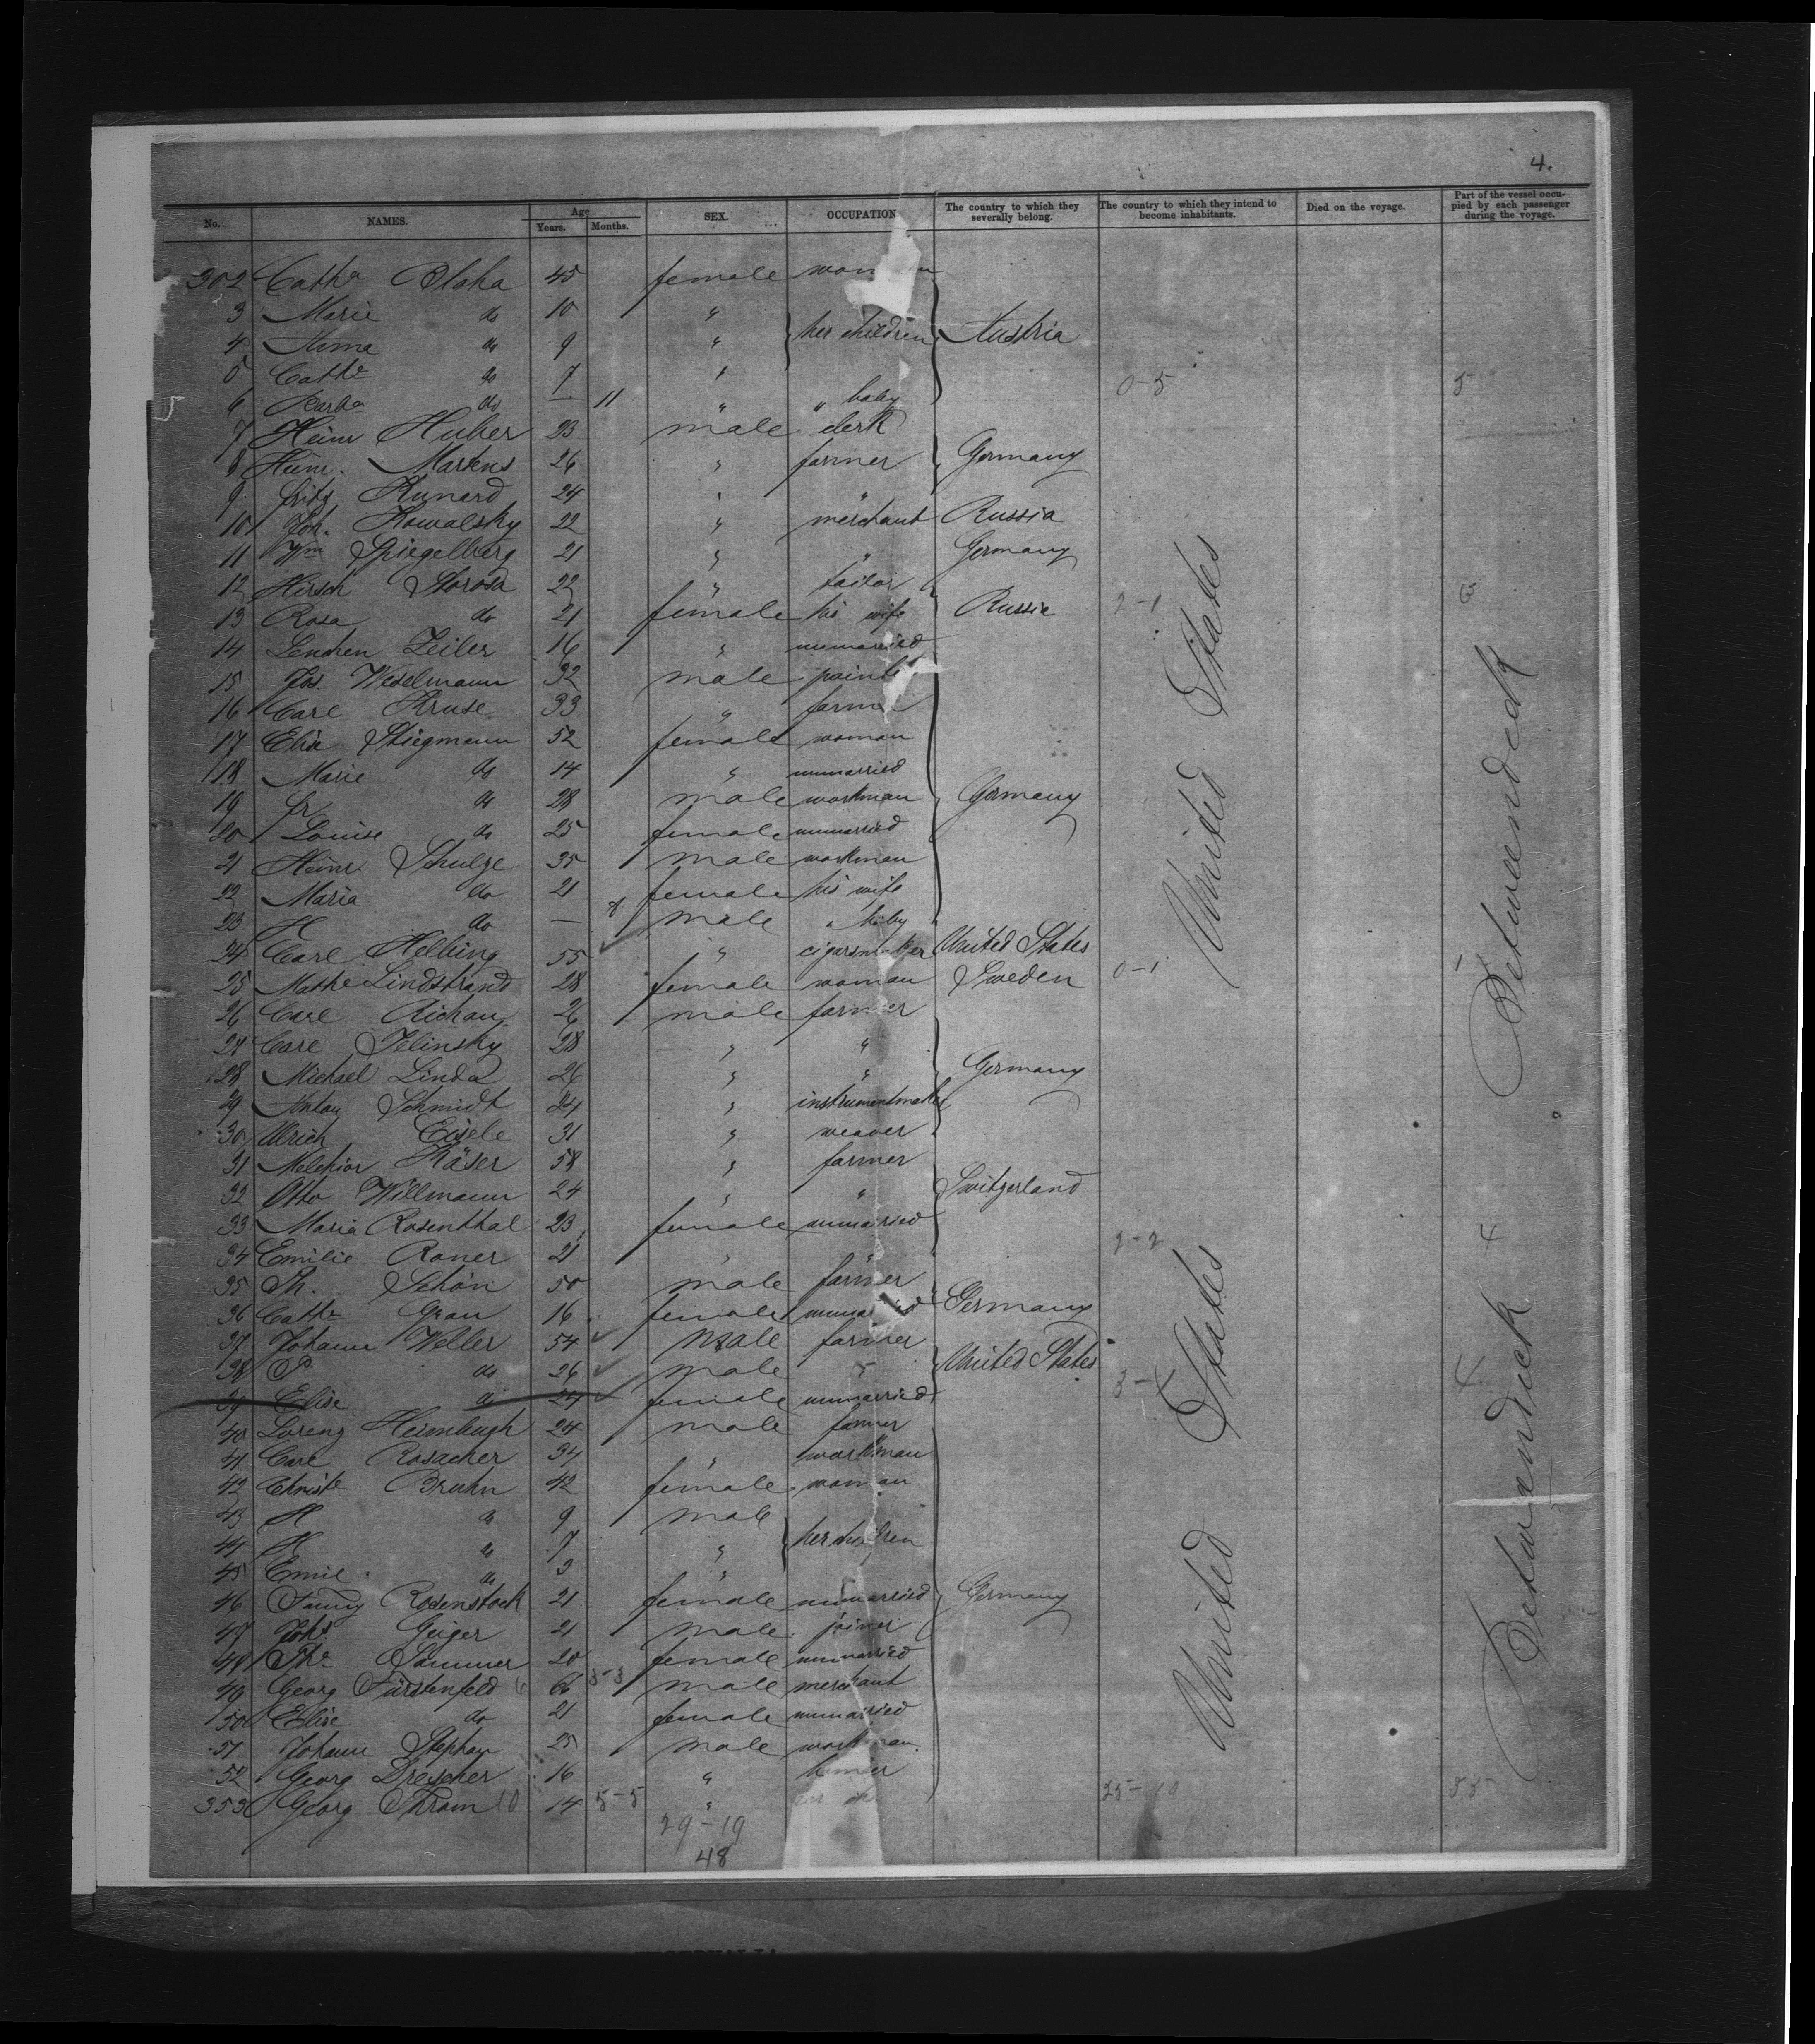 4.
No. NAMES. Age Years. Months. SEX. OCCUPATION The country to which they severally belong. The country to which they intend to become inhabitants. Died on the voyage. Part of the vessel occupied by each passenger during the voyage.
302 Cathe Blaha 45 female
3 Marie do 10 "
4 do 9 " her children Austria
5 Cathe do 7 " 0-5 5
6 Barba do — 11 " " baby
7 Heinr Huber 23 male clerk
8 Heinr. Martens 26 " farmer Germany
9 Fritz Kunard 24 " "
10 Joh. Kowalsky 22 " merchant Russia
11 Wm Spiegelberg 21 " " Germany
12 Hirsch 22 " tailor
13 Rosa do 21 female his wife Russia 2-1
14 Lenchen Zeiler 16 " unmarried
15 Jos. Weselmann 32 male
16 Carl Kruse 33 "
17 Elisa Stiegmann 52 female woman
18 Marie do 14 " unmarried
19 Fr do 28 male workman Germany
20 Louise do 25 female unmarried
21 Heinr. Schulze 35 male workman
22 Maria do 21 female his wife
23 H do — 8 male " baby
24 Carl Helbing 55 " cigarsmaker United States
25 Mathe Lindstrand 28 female woman Sweden 0-1 1
26 Carl Richau 26 male farmer
27 Carl Jelinsky 28 " "
28 Michael Linda 26 " " Germany
29 Antay Schmidt 24 " instrumentmaker
30 Ulrich Eisele 31 " weaver
31 Melchior Käser 58 " farmer
32 Otto Willmann 24 " " Switzerland
33 Maria Rosenthal 23 female unmarried
34 Emilie Roner 21 " " 2-2 4
35 Th. Schön 50 male farmer
36 Cathe Grau 16 female Germany
37 Johann Weller 54 male farmer
38 P do 26 male " United States
39 Elise do 24 female unmarried 3-4 4
40 Lorenz Heimbuch 24 male farmer
41 Carl Rosacher 34 " workman
42 Christe Bruhn 42 female woman
43 H do 9 male
44 H do 7 " her children
45 Emil do 3 "
46 Fanny Rosenstock 21 female unmarried Germany
47 Johs Geiger 21 male joiner
48 The Sommer 20 female unmarried
49 Georg Fürstenfeld 66 3-3 male merchant
50 Elise do 21 female unmarried
51 Johann Stephan 25 male workman
52 Georg Drescher 16 "
353 Georg Thram 10 14 5-5 " 25-10 35
29-19
48
United States
United States
Betweendeck
Betweendeck